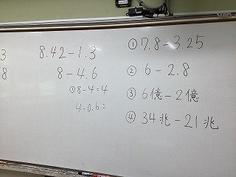 3
8
8.42-1.3
8-4.6
①8-4=4
4-0.6=
①7.8-3.25
②6-2.8
③6億-2億
④34兆-21兆